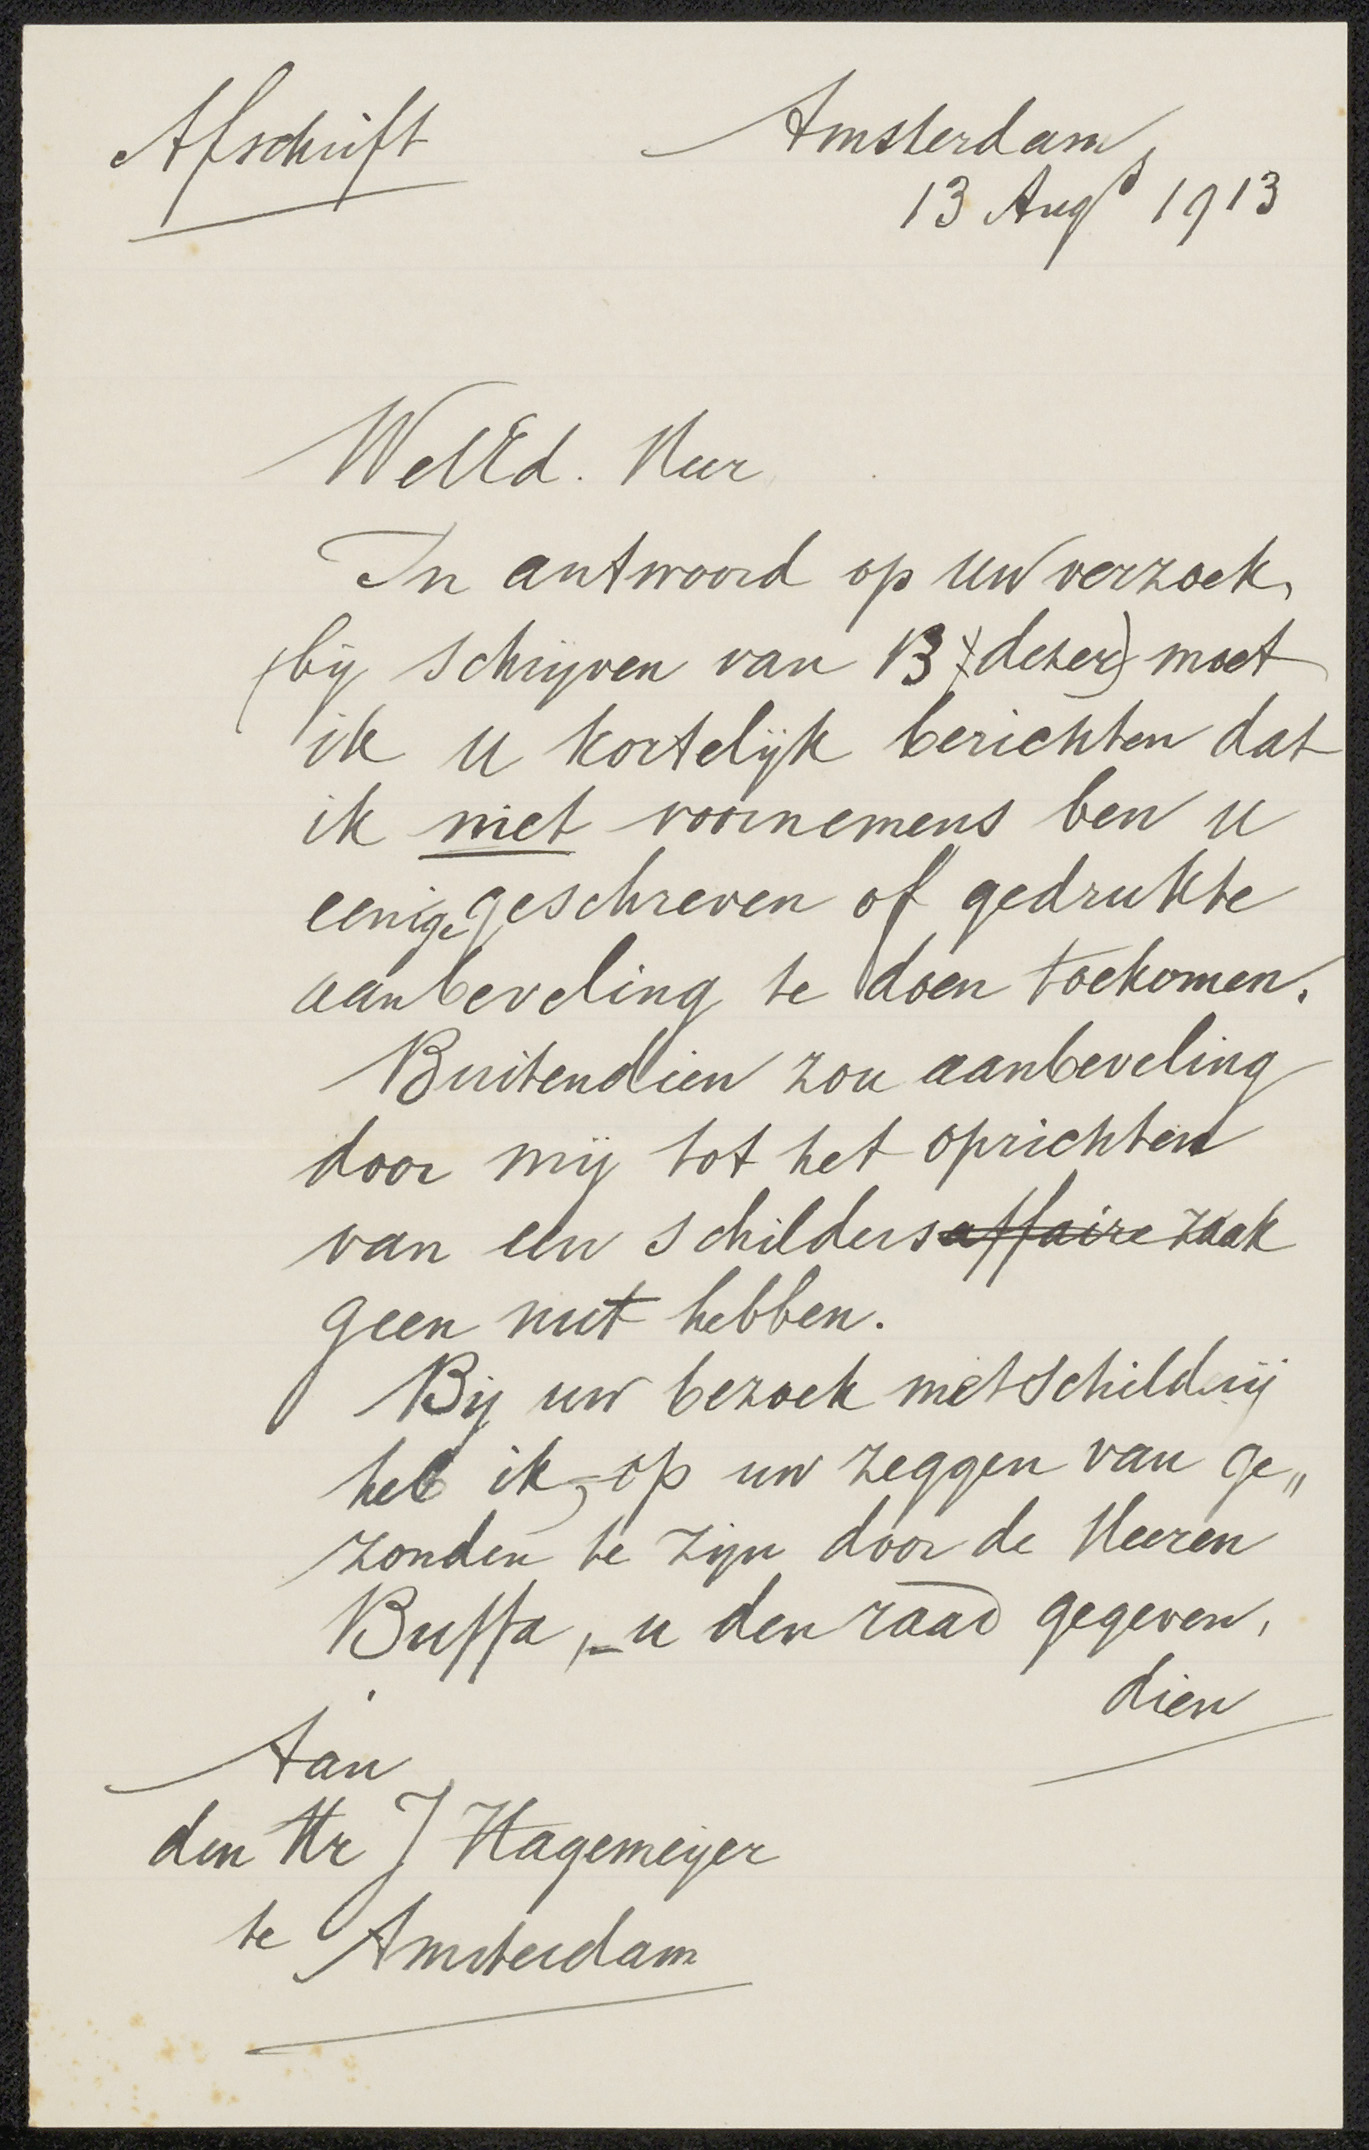 Afschrift
Amsterdam
13 Augs 1913
WelEd. Heer
In antwoord op uw verzoek,
(bij schrijven van 13 dezer) moet
ik u kortelijk berichten dat
ik niet voornemens ben u
eenige geschreven of gedrukte
aanbeveling te doen toekomen.
Buitendien zou aanbeveling
door mij tot het oprichten
van een schildersaffaire zaak
geen nut hebben.
Bij uw bezoek met schilderij
heb ik, op uw zeggen van ge„
zonden te zijn door de Heeren
Buffa, - u den raad gegeven,
dien
Aan
den Hr J Hagemeijer
te Amsterdam